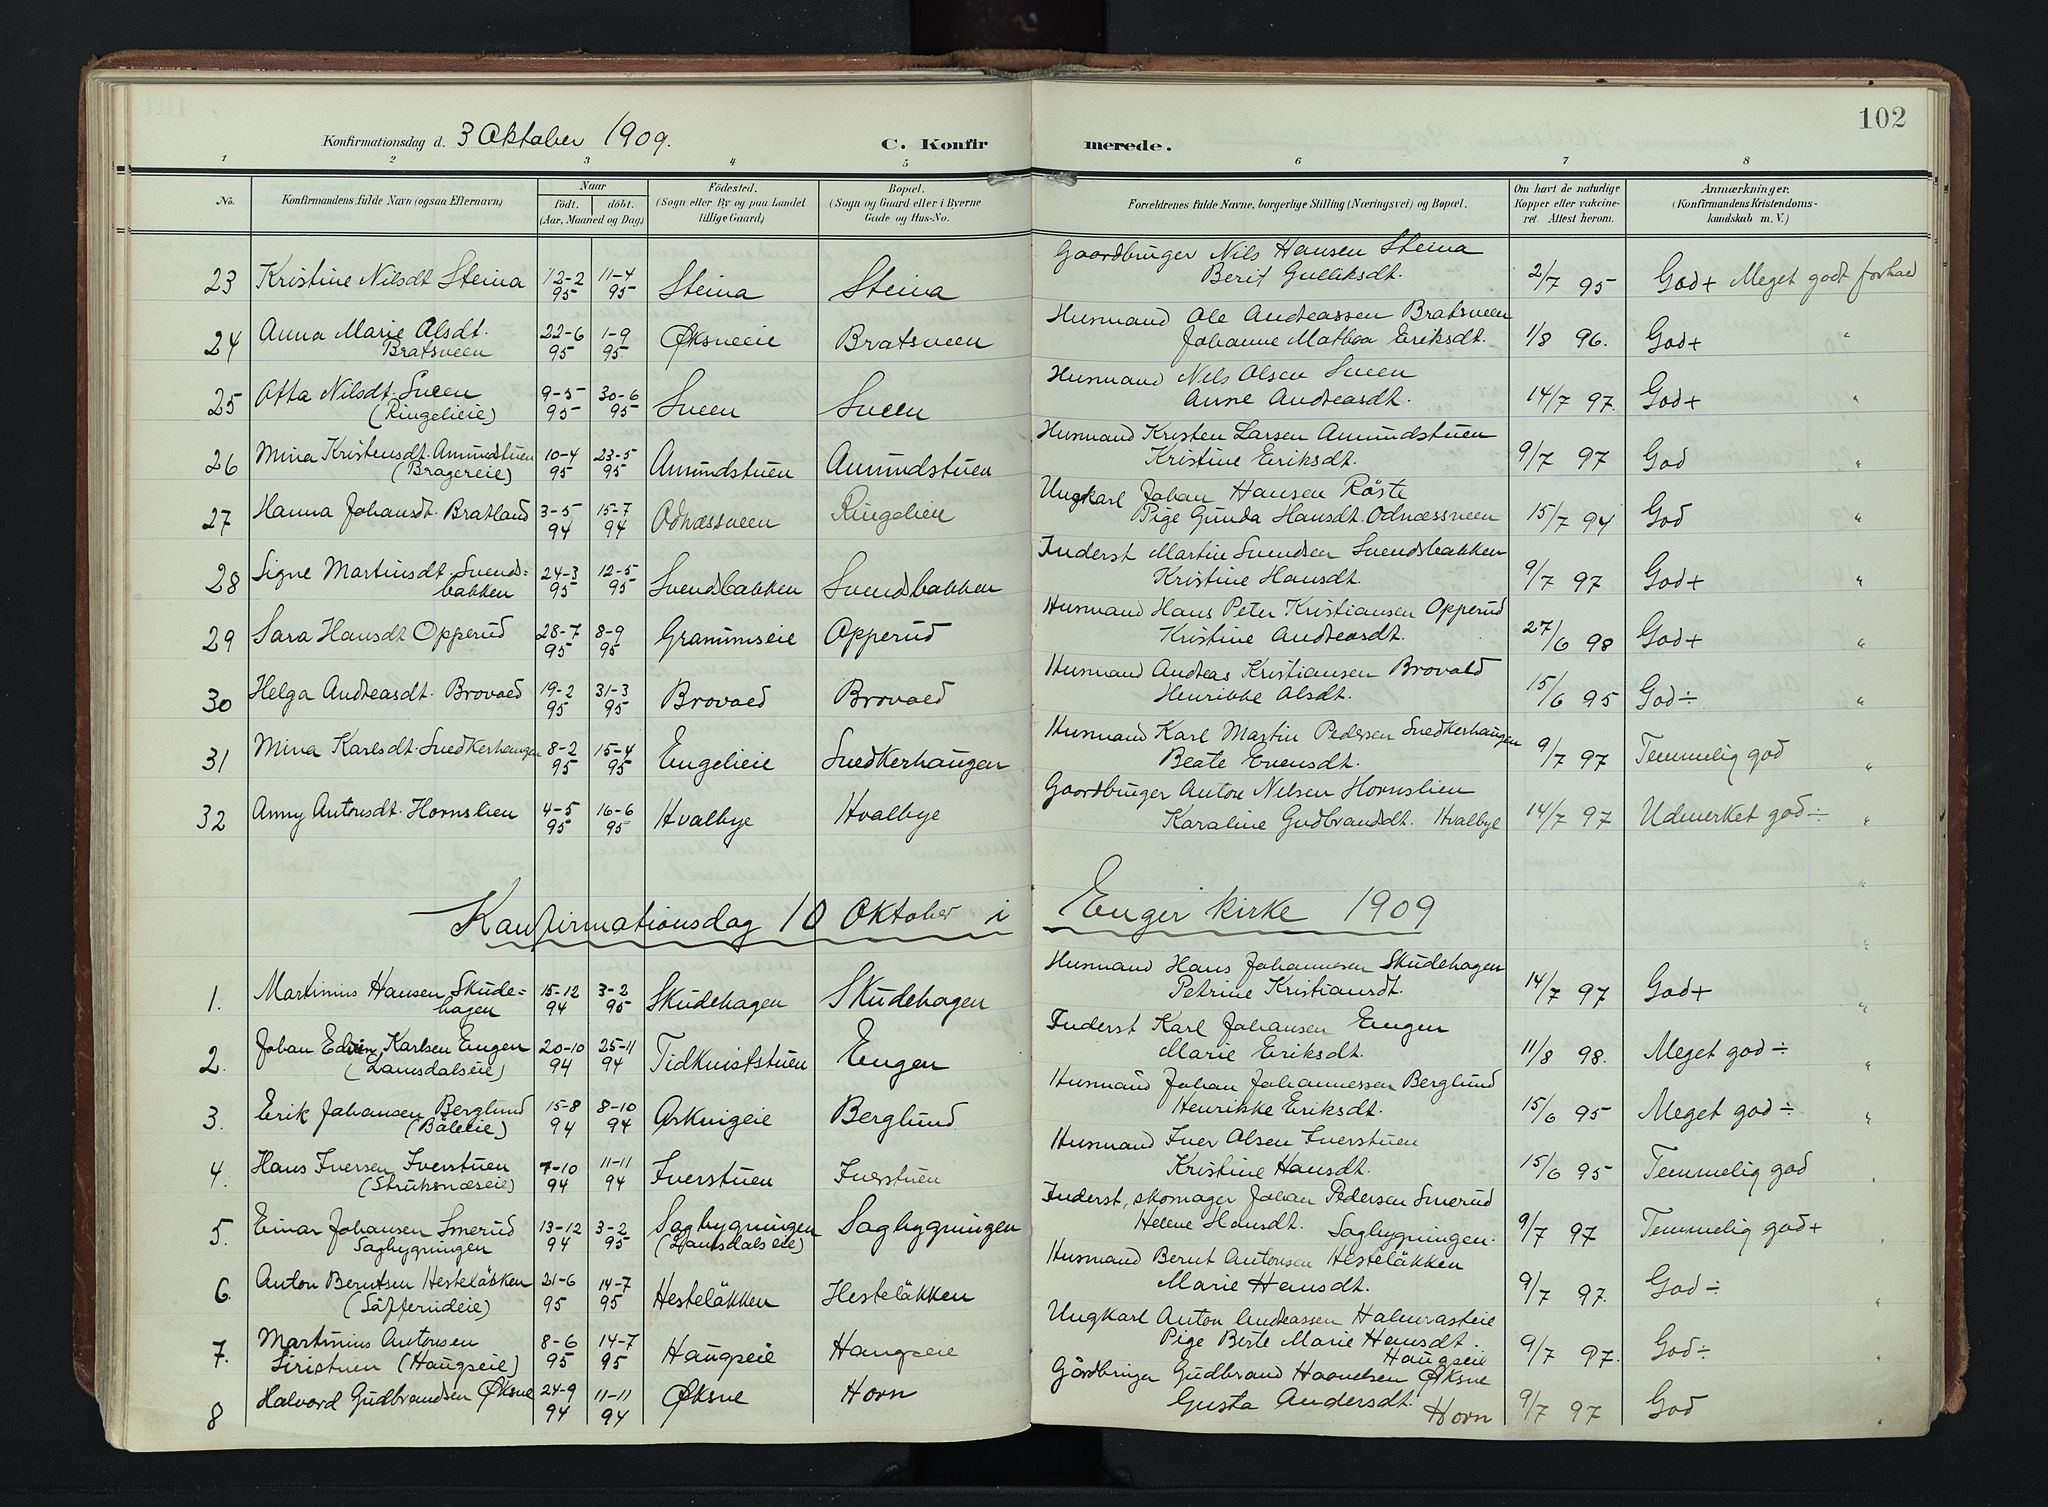 102
Konfirmationsdag d. 3 Oktober 1909.
C. Konfirmerede.
1 2 3 4 5 6 7 8
No.
Konfirmandens fulde Navn (ogsaa Efternavn)
Naar
födt. döbt.
(Aar, Maaned og Dag)
Födested.
(Sogn eller By og paa Landet
tillige Gaard)
Bopæl.
(Sogn og Gaard eller i Byerne
Gade og Hus-No.
Forældrenes fulde Navne, borgerlige Stilling (Næringsvei) og Bopæl.
Om havt de naturlige
Kopper eller vakcine-
ret. Attest herom.
Anmærkninger.
(Konfirmandens Kristendoms-
kundskab m. V.)
Gaardbruger Nils Hansen Steina
23 Kristine Nilsdt Steina 12-2 95 11-4 95 Steina Steina Berit Gulliksdt. 2/7 95 God+ Meget godt forhold
Husmand Ole Andreassen Bratsveen
24 Anna Marie Olsdt. Bratsveen 22-6 95 1-9 95 Øksneeie Bratsveen Johanne Mathea Eriksdt. 1/8 96. God+ "
Husmand Nels Olsen Sveen
25 Otta Nilsdt. Sveen (Ringelieie) 9-5 95 30-6 95 Sveen Sveen Anne Andreasdt. 14/7 97. God+ "
Husmand Kristen Larsen Amundstuen
26 Mina Kristensdt. Amundstuen (Bragereie) 10-4 95 23-5 95 Amundstuen Amundstuen Kristine Eriksdt. 9/7 97 God "
Ungkarl Johan Hansen Röste
27 Hanna Johansdt. Bratland 3-5 94 15-7 94 Odnæssveen Ringelien Pige Gunda Hansdt. Odnæssveen 15/7 94 God "
Inderst Martin Svendsen Svendsbakken
28 Signe Martinsdt. Svends=bakken 24-3 95 12-5 95 Svendsbakken Svendsbakken Kristine Hansdt. 9/7 97 God+ "
Husmand Hans Peter Kristiansen Opperud
29 Sara Hansdt Opperud 28-7 95 8-9 95 Granumseie Opperud Kristine Andreasdt. 27/6 98 God+ "
Husmand Andreas Kristiansen Brovold
30 Helga Andreasdt. Brovold 19-2 95 31-3 95 Brovold Brovold Henrikke Olsdt. 15/6 95 God÷ "
Husmand Karl Martin Pedersen Snedkerhaugen
31 Mina Karlsdt. Snedkerhaugen 8-2 95 15-4 95 Engelieie Snedkerhaugen Beate Evensdt. 9/7 97 Temmelig god "
Gaardbruger Anton Nilsen Hornslien
32 Anny Antonsdt. Hornslien 4-5 95 16-6 95 Hvalbye Hvalbye Karoline Gudbrandsdt. Hvalbye 14/7 97 Udmerket god÷ "
Konfirmationsdag 10 Oktober i Enger kirke 1909
Husmand Hans Johannesen Skudehagen
1. Martinius Hansen Skude=hagen 15-12 94 3-2 95 Skudehagen Skudehagen Petrine Kristiansdt. 14/7 97 God+ "
Inderst Karl Johansen Engen
2. Johan Edvin Karlsen Engen (Lansdalseie) 20-10 94 25-11 94 Tidkviststuen Engen Marie Eriksdt. 11/8 98. Meget god÷ "
Husmand Johan Johannessen Berglund
3. Erik Johansen Berglund 15-8 94 8-10 94 Askvigeie Berglund Henrikke Eriksdt. 15/6 95 Meget god÷ "
Husmand Iver Olsen Iverstuen
4. Hans Iversen Iverstuen (Struksnæseie) 7-10 94 11-11 94 Iverstuen Iverstuen Kristine Hansdt. 15/6 95 Temmelig god
Inderst, skomager Johan Pedersen Smerud
5. Einar Johansen Smerud Sagbygningen 13-12 94 3-2 95 Sagbygningen (Lansdalseie) Sagbygningen Helene Hansdt. Sagbygningen. 9/7 97 Temmelig god+
Husmand Bernt Antonsen Hesteläkken
6. Anton Berntsen Hesteläkken 21-6 95 14-7 95 Hesteläkken Hesteläkken Marie Hansdt. 9/7 97. God÷ "
Ungkarl Anton Andreassen
7. Martinius Antonsen Siristuen (Haugseie) 8-6 95 14-7 95 Haugseie Haugseie Pige Berte Marie Hansdt. Haugseie 9/7 97. God÷ "
Gårdbruger Gudbrand Øksne
8 Halvord Gudbrandsen Øksne 24-9 94 11-11 94 Øksne Horn Gusta Andersdt. Horn 9/7 97 God